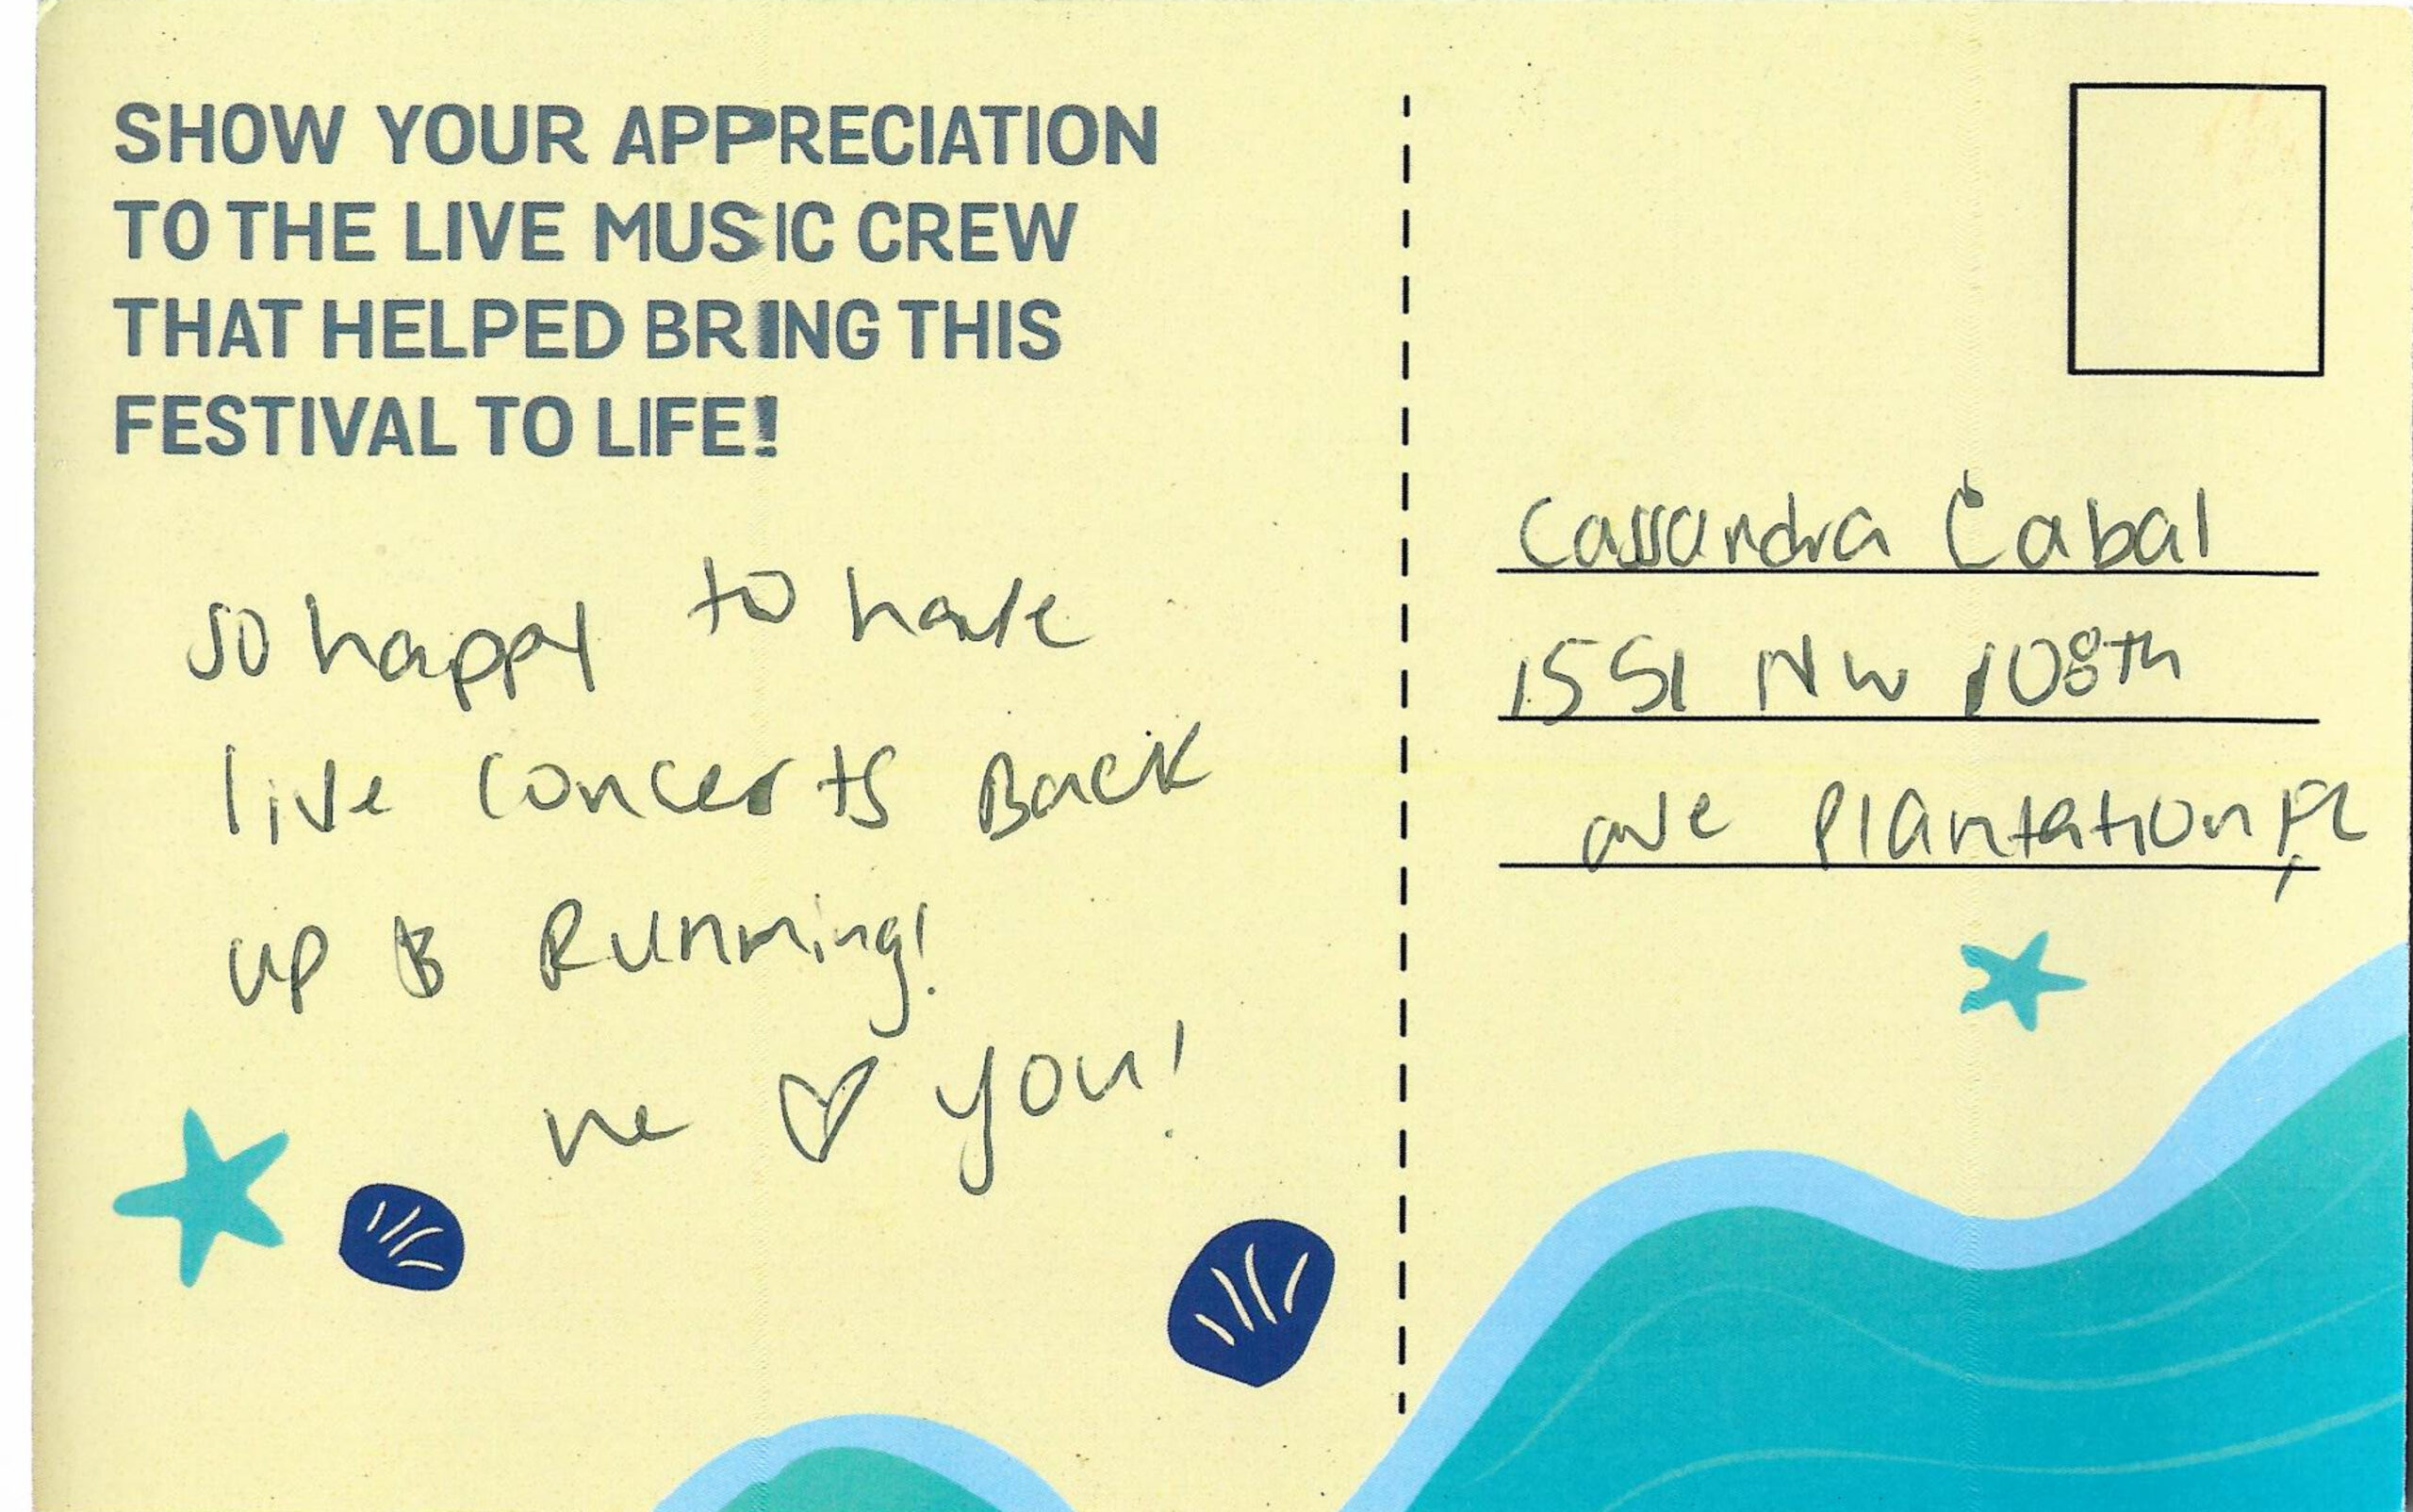 SHOW YOUR APPRECIATION
TO THE LIVE MUSIC CREW
THAT HELPED BRING THIS
FESTIVAL TO LIFE!
so happy to have
live concerts Back
up & Running!
we ♡ you!
Cassandra Cabal
1551 NW 108th
ave Plantation, FL